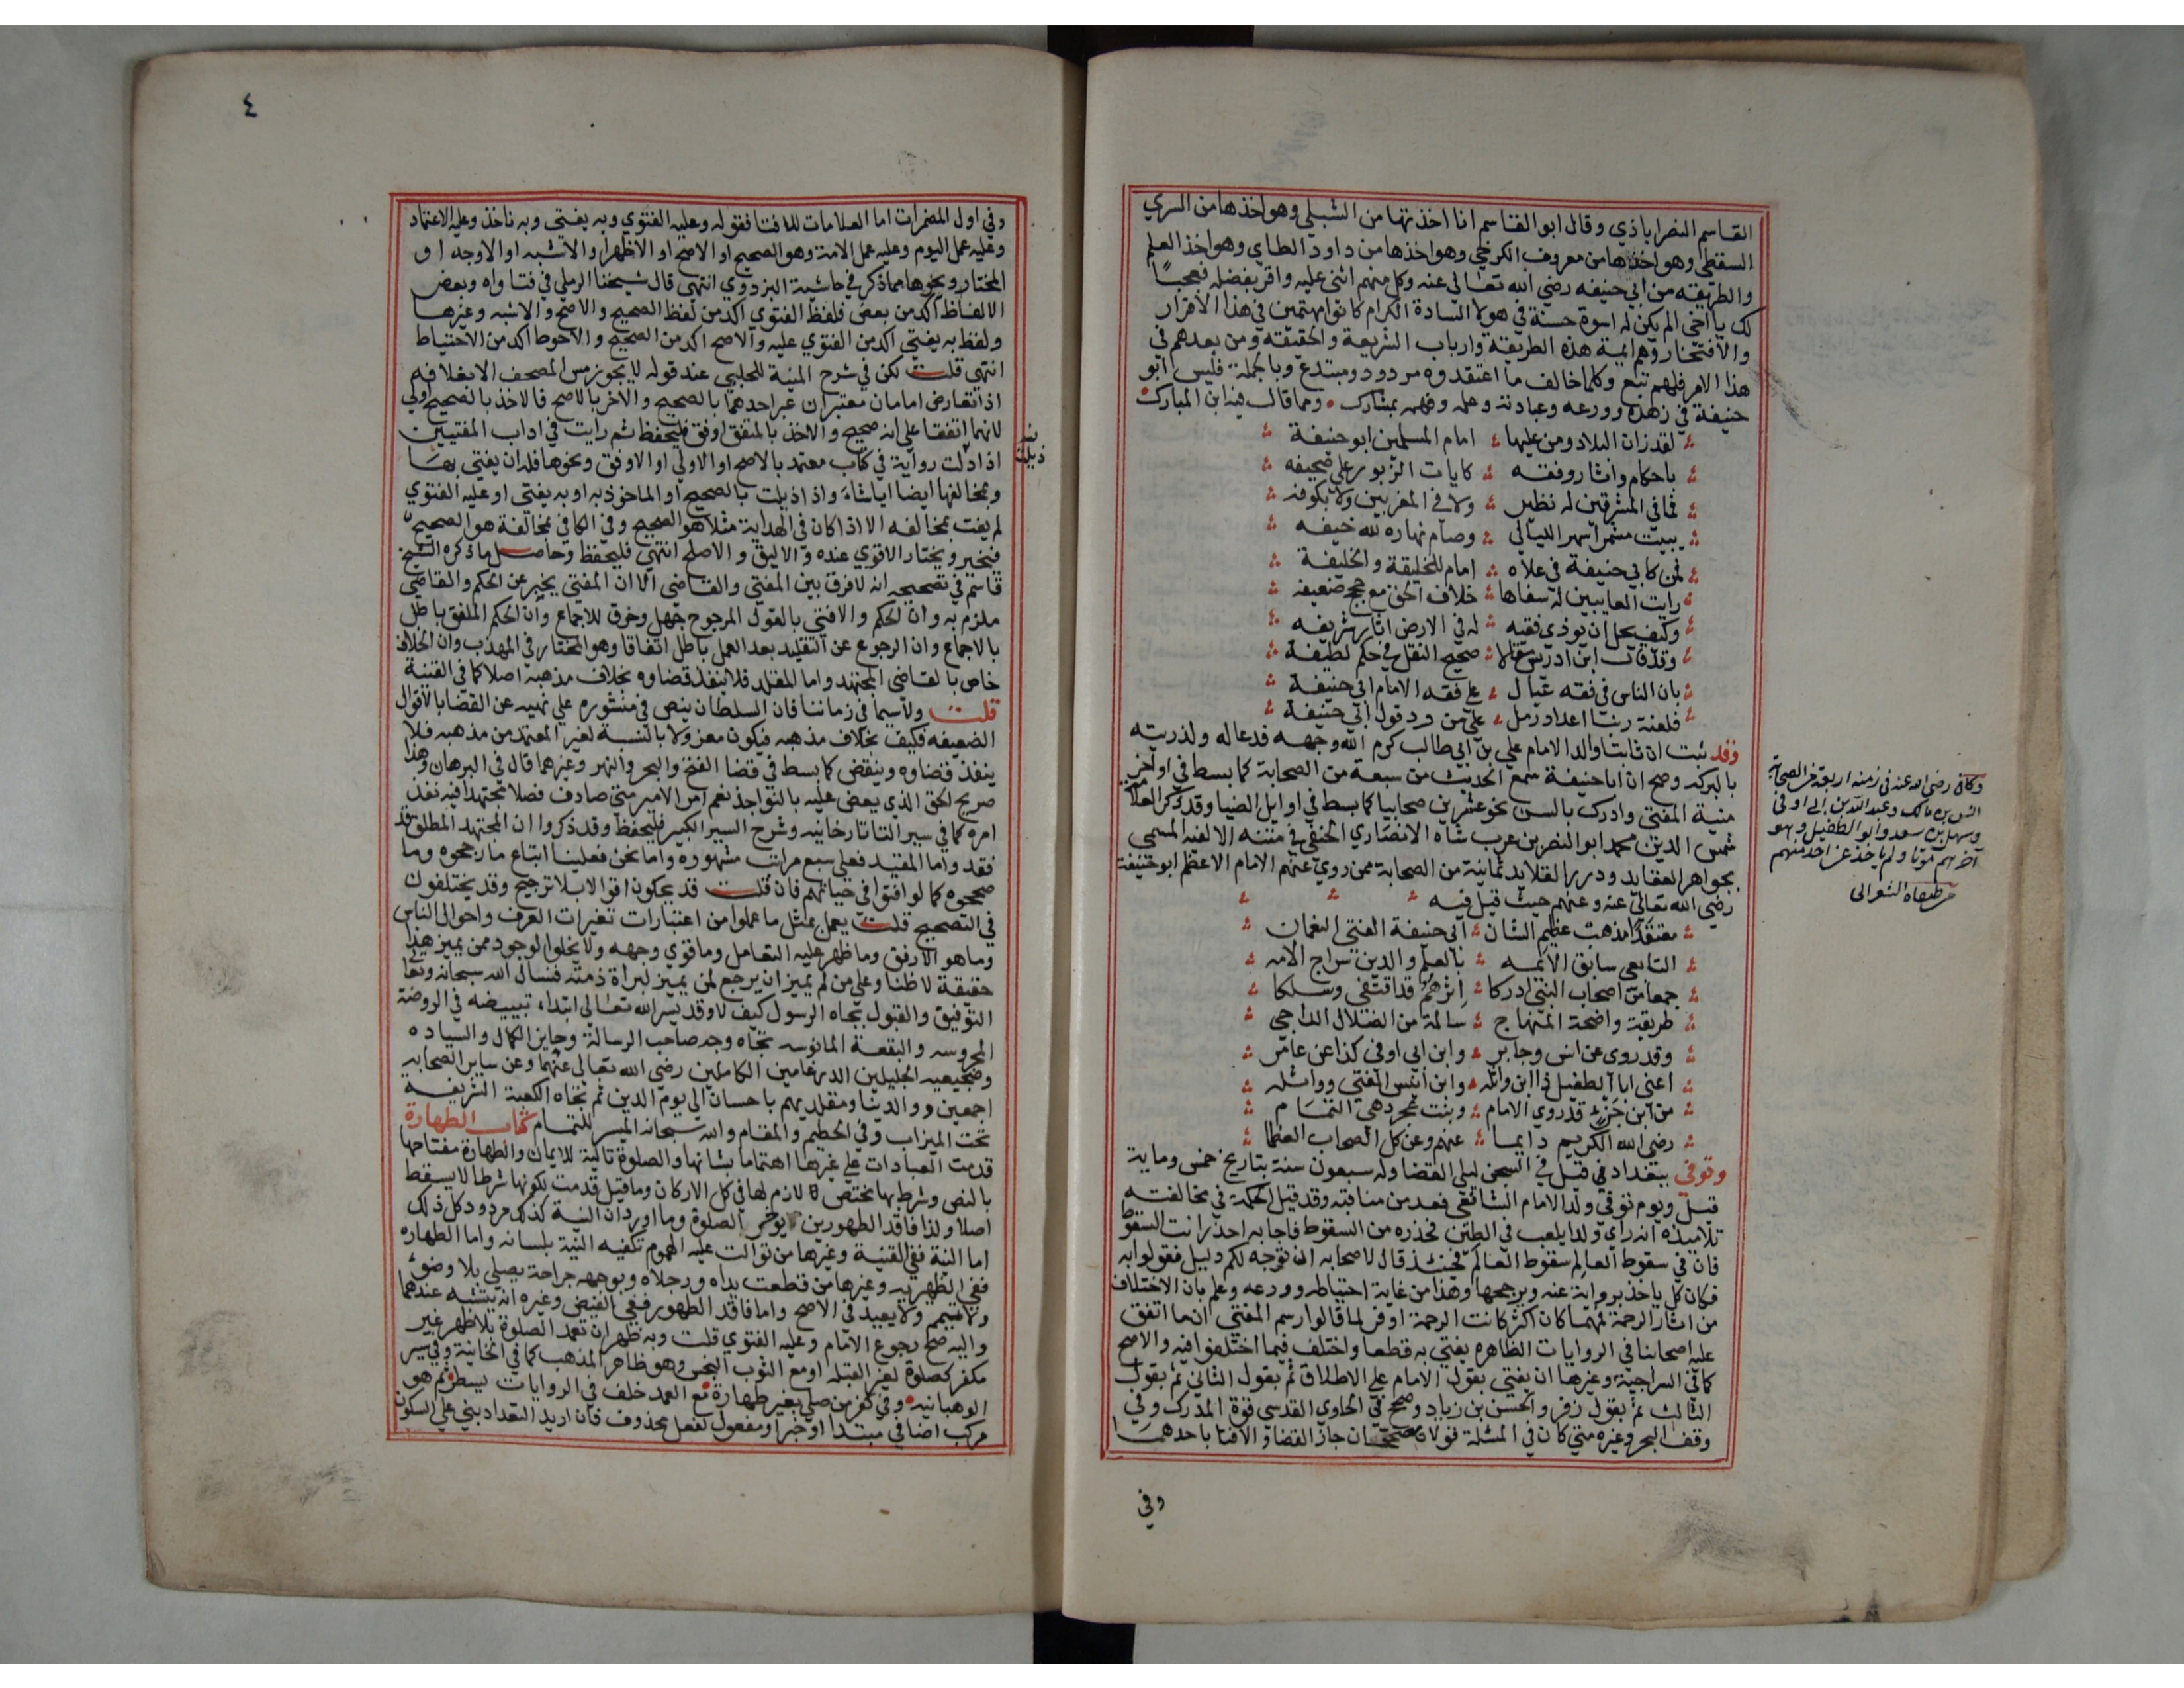 القاسم النصراباذي وقال ابو القاسم انا اخذتها من الشبلي وهو اخذها من السري
السقطي وهو اخذها من معروف الكرخي وهو اخذها من داود الطاي وهو اخذ العلم
والطريقه من ابي حنيفه رضي الله تعالى عنه وكل منهم اثني عليه واقر بفضله فعجبا
لك يا اخي الم يكن له اسوة حسنة في هولا السادة الكرام كانوا متهمين في هذا الاقرار
والافتخار وهم ايمة هذه الطريقة وارباب الشريعة والحقيقه ومن بعدهم في
هذا الامر فلهم تبع وكلما خالف ما اعتقدوه مردود ومبتدع وبالجملة فليس ابو
حنيفة في زهده وورعه وعبادته وعلمه وفهمه بمشارك ومما قال فيه ابن المبارك
لقد زان البلاد ومن عليها امام المسلمين ابو حنيفة
باحكام واثار وفقه كايات الزبور على صحيفه
فما في المشرقين له نظير ولا في المغربين ولا بكوفه
يبيت مشمرا سهر الليالي وصام نهاره لله خيفه
فمن كابي حنيفة في علاه امام للخليقة والخليفة
رايت العايبين له سفاها خلاف الحق مع حجج ضعيفه
وكيف يحل ان يوذي فقيه له في الارض اثار شريفه
وقد قال ابن ادريس مقالا صحيح النقل في حكم لطيفة
بان الناس في فقه عيال على فقه الامام ابي حنيفة
فلعنة ربنا اعداد رمل على من رد قول ابي حنيفة
وقد ثبت ان ثابتا والد الامام علي بن ابي طالب كرم الله وجهه فدعا له ولذريته
بالبركه وصح ان ابا حنيفة سمع الحديث من سبعة من الصحابة كما بسط في اواخر
منية المفتي وادرك بالسن نحو عشرين صحابيا كما بسط في اوايل الضيا وقد ذكر العلامة
شمس الدين محمد ابو النصر بن عرب شاه الانصاري الحنفي في متنه الالفيه المسمي
بجواهر العقايد ودرر القلايد ثمانية من الصحابة ممن روي عنهم الامام الاعظم ابو حنيفة
رضي الله تعالى عنه وعنهم حيث قيل فيه
معتقدا مذهب عظيم الشان ابي حنيفة الفتي النعمان
التابعي سابق الايمه بالعلم والدين سراج الامه
جمعا من اصحاب النبي ادركا اثرهم قد اقتفي وسلكا
طريقة واضحة المنهاج سالمة من الضلال الداجي
وقد روي عن انس وجابر وابن ابي اوفي كذا عن عامر
اعني ابا الطفيل ذا ابن واثله وابن انيس الفتي وواثله
من ابن جزء قد روي الامام وبنت عجرد هي التمام
رضي الله الكريم دايما عنهم وعن كل الصحاب العظما
وتوفي ببغداد في قيل في السجن ليلي القضا وله سبعون سنة بتاريخ خمس وماية
قيل ويوم توفي ولد الامام الشافعي فعد من مناقبه وقد قيل الحكمة في مخالفته
تلاميذه انه راي ولدا يلعب في الطين فحذره من السقوط فاجابه احذر انت السقوط
فان في سقوط العالم سقوط العالم فحينئذ قال لاصحابه ان توجه لكم دليل فقولوا به
فكان كل ياخذ برواية عنه ويرجحها وهذا من غاية احتياطه وورعه وعلم بان الاختلاف
من اثار الرحمة فمهما كان اكثر كانت الرحمة اوفر لما قالوا رسم المفتي ان ما اتفق
عليه اصحابنا في الروايات الظاهره يفتي به قطعا واختلف فيما اختلفوا فيه والاصح
كما في السراجية وغيرها ان يفتي بقول الامام على الاطلاق ثم بقول الثاني ثم بقول
الثالث ثم بقول زفر والحسن بن زياد وصحح في الحاوي القدسي قوة المدرك وفي
وقف البحر وغيره متي كان في المسئلة قولان مصححان جاز القضا والافتا باحدهما
وفي
وكان رضي الله عنه في زمنه اربعة من الصحابة
انس بن مالك وعبد الله بن ابي اوفى
وسهل بن سعد وابو الطفيل وهو
آخرهم موتا ولم ياخذ عن احد منهم
من طبقات الشعراني
٤
وفي اول المضمرات اما العلامات للافتا فقوله وعليه الفتوي وبه يفتي وبه ناخذ وعليه الاعتماد
وعليه عمل اليوم وعليه عمل الامة وهو الصحيح او الاصح او الاظهر او الاشبه او الاوجه او
المختار ونحوها مما ذكر في حاشية البزدوي انتهي قال شيخنا الرملي في فتاواه وبعض
الالفاظ اكد من بعض فلفظ الفتوي اكد من لفظ الصحيح والاصح والاشبه وغيرها
ولفظ به يفتي اكد من الفتوي عليه والاصح اكد من الصحيح والاحوط اكد من الاحتياط
انتهي قلت لكن في شرح المنية للحلبي عند قوله لا يجوز مس المصحف الا بغلافه
اذا تعارض امامان معتبران عبر احدهما بالصحيح والاخر بالاصح فالاخذ بالصحيح اولي
لانهما اتفقا على انه صحيح والاخذ بالمتفق اوفق فليحفظ ثم رايت في اداب المفتيين
ذيلت
اذا دلت رواية في كتاب معتمد بالاصح او الاولي او الاوفق ونحوها فله ان يفتي بها
وبمخالفها ايضا ايا شاء واذا ذيلت بالصحيح او الماخوذ به او به يفتي او عليه الفتوي
لم يفت بمخالفه الا اذا كان في الهداية مثلا هو الصحيح وفي الكافي بمخالفة هو الصحيح
فيخير ويختار الاقوي عنده والاليق والاصلح انتهي فليحفظ وحاصل ما ذكره الشيخ
قاسم في تصحيحه انه لا فرق بين المفتي والقاضي الا ان المفتي يخبر عن الحكم والقاضي
ملزم به وان الحكم والافتي بالقول المرجوح جهل وخرق للاجماع وان الحكم الملفق باطل
بالاجماع وان الرجوع عن التقليد بعد العمل باطل اتفاقا وهو المختار في المهذب وان الخلاف
خاص بالقاضي المجتهد واما المقلد فلا ينفذ قضاوه بخلاف مذهبه اصلا كما في القنية
قلت ولا سيما في زماننا فان السلطان ينص في منشوره على نهيه عن القضا بالاقوال
الضعيفه فكيف بخلاف مذهبه فيكون معزولا بالنسبة لغير المعتمد من مذهبه فلا
ينفذ قضاوه وينقض كما بسط في قضا الفتح والبحر والنهر وغيرهما قال في البرهان وهذا
صريح الحق الذي يعض عليه بالنواجذ نعم امر الامير متي صادف فصلا مجتهدا فيه نفذ
امره كما في سير التاتارخانيه وشرح السير الكبير فليحفظ وقد ذكروا ان المجتهد المطلق قد
فقد واما المقيد فعلى سبع مراتب مشهوره واما نحن فعلينا اتباع ما رجحوه وما
صححوه كما لو افتوا في حياتهم فان قلت قد يحكون اقوالا بلا ترجيح وقد يختلفون
في التصحيح قلت يعمل بمثل ما عملوا من اعتبارات تغيرات العرف واحوال الناس
وما هو الارفق وما ظهر عليه التعامل وما قوي وجهه ولا يخلوا الوجود ممن يميز هذا
حقيقة لا ظنا وعلى من لم يميز ان يرجع لمن يميز لبراة ذمته فنسال الله سبحانه وتعالى
التوفيق والقبول بجاه الرسول كيف لا وقد يسر الله تعالى ابتداء تبييضه في الروضة
المحروسه والبقعة المانوسه تجاه وجه صاحب الرسالة وحايز الكمال والسياده
وضجيعيه الجليلين الدرغامين الكاملين رضي الله تعالى عنهما وعن ساير الصحابه
اجمعين ووالدينا ومقلديهم باحسان الى يوم الدين ثم تجاه الكعبة الشريفه
تحت الميزاب وفي الحطيم والمقام والله سبحانه الميسر للتمام كتاب الطهارة
قدمت العبادات على غيرها اهتماما بشانها والصلوة تالية للايمان والطهارة مفتاحها
بالنص وشرط بها مختص لازم لها في كل الاركان وما قيل قدمت لكونها شرطا لا يسقط
اصلا ولذا فاقد الطهورين يوخر الصلوة وما اورد ان النية كذلك مردود كل ذلك
اما النية ففي القنية وغيرها من توالت عليه الهموم تكفيه النية بلسانه واما الطهاره
ففي الظهيريه وغيرها من قطعت يداه ورجلاه وبوجهه جراحة يصلي بلا وضوء
ولا تيمم ولا يعيد في الاصح واما فاقد الطهور ففي الفيض وغيره انه يتشبه عندهما
واليه صح رجوع الامام وعليه الفتوي قلت وبه ظهر ان تعمد الصلوة بلا طهر غير
مكفر كصلوة لغير القبله او مع الثوب النجس وهو ظاهر المذهب كما في الخانية وفي سير
الوهبانيه وفي كفر من صلي بغير طهارة مع العمد خلف في الروايات يسطر ثم هو
مركب اضافي مبتدا او خبر او مفعول لفعل محذوف فان اريد التعداد بني على السكون